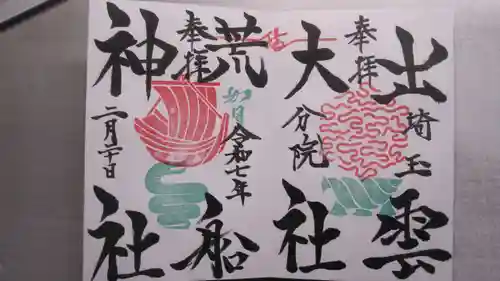 出雲
奉拝
埼玉
大社
分院
奉拝
荒船
令和七年
如月
神社
二月二十日